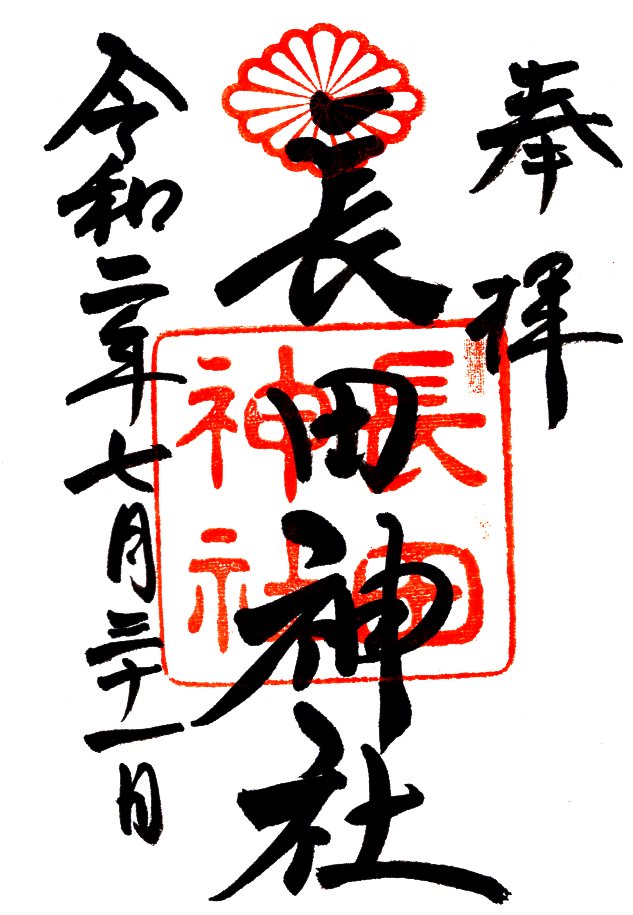 奉拝
長田神社
長田神社
令和二年七月三十一日